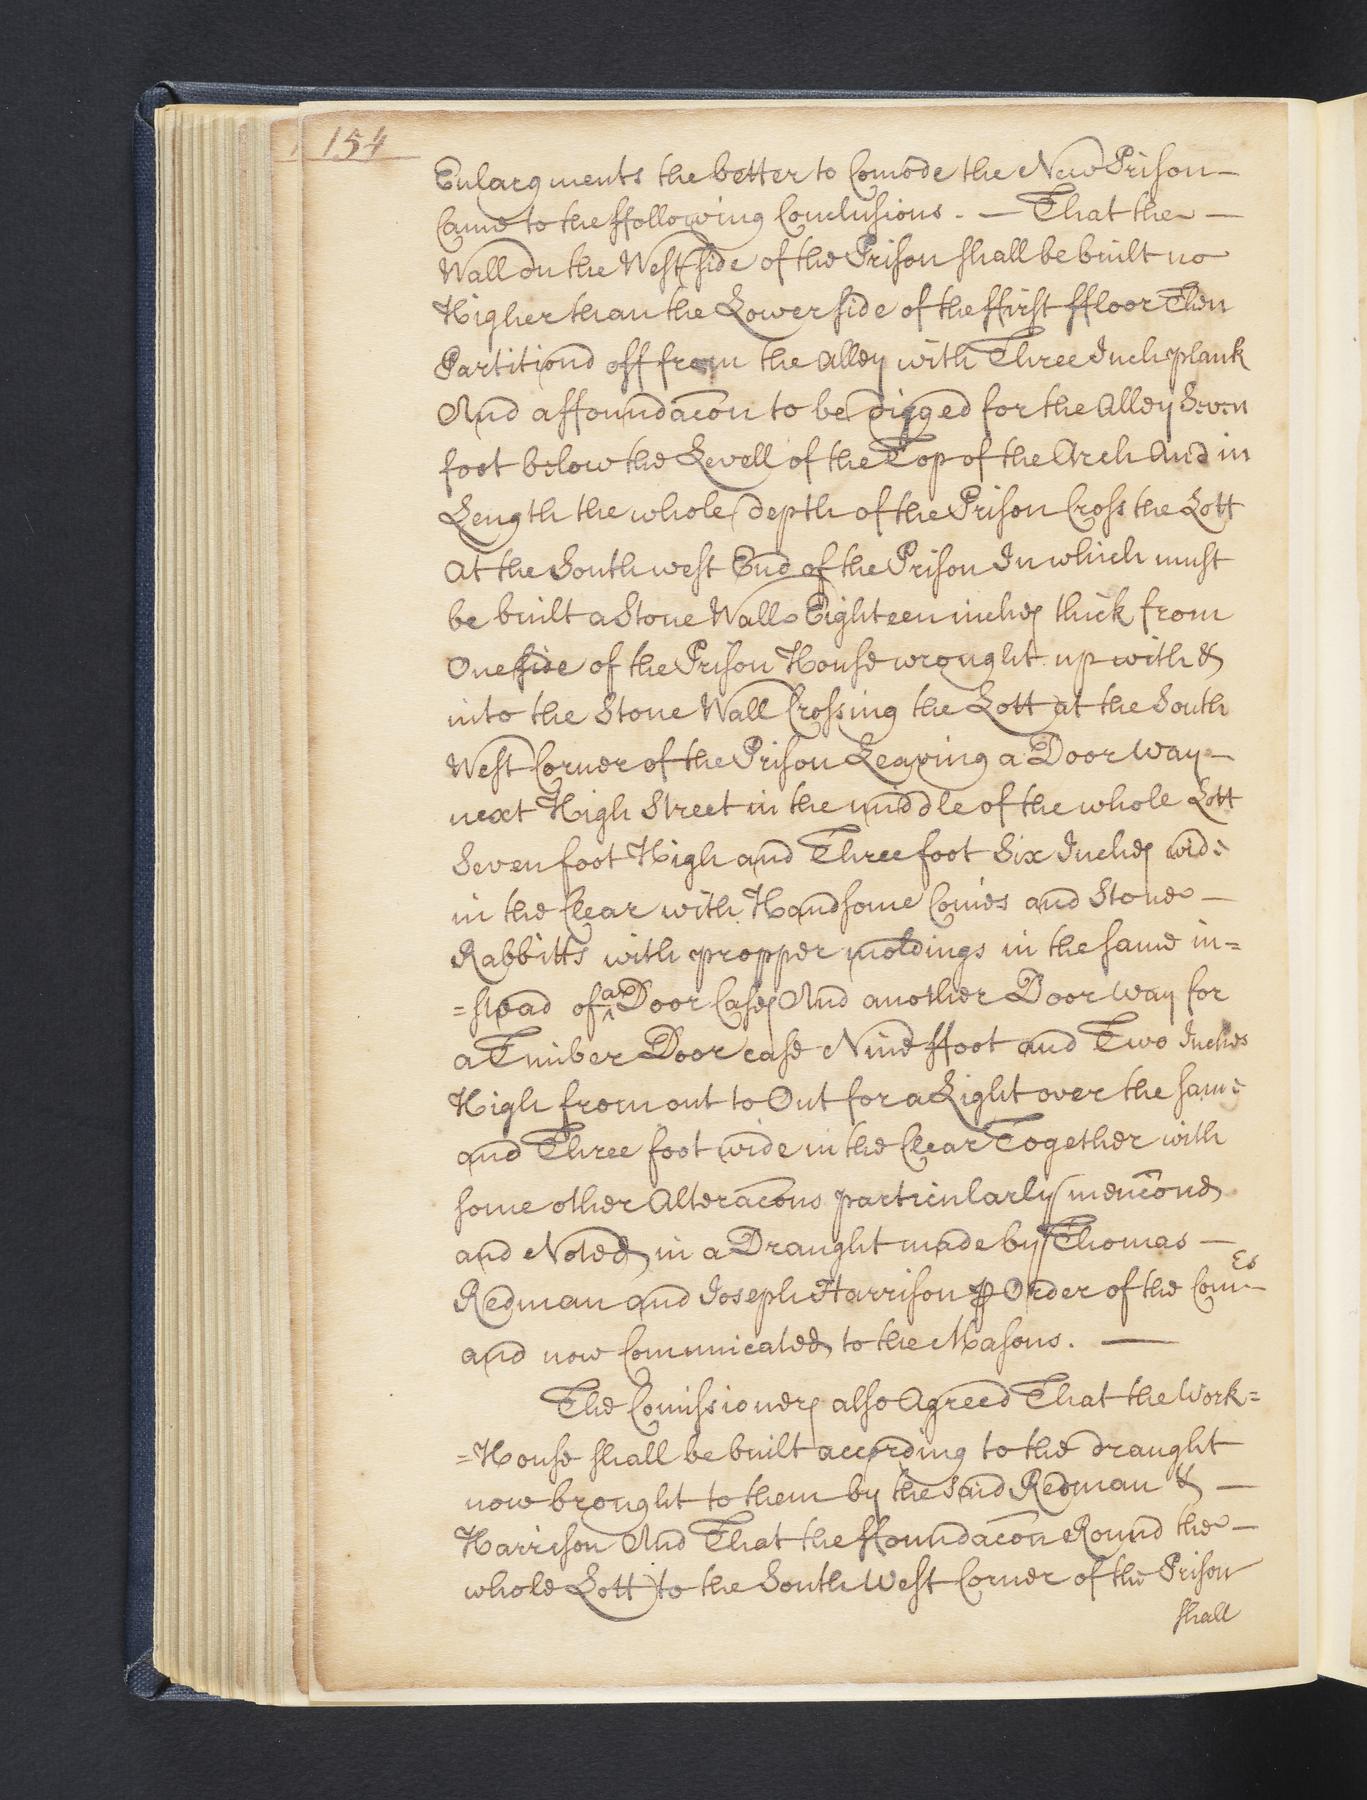 154
Enlargments the better to Comode the New Prison —
Came to the ffollowing Conclusions. — That the —
Wall on the West side of the Prison shall be built no
Higher than the Lower side of the ffirst ffloor Then
Partitiond off from the Alley with Three Inch plank
And a ffoundacon to be digged for the Alley Seven
foot below the Levell of the Top of the Arch And in
Length the whole depth of the Prison Cross the Lott
At the South west End of the Prison In which must
be built a Stone Wall Eighteen inches thick from
One side of the Prison House wrought up with &
into the Stone Wall Crossing the Lott at the South
West Corner of the Prison Leaving a Door Way —
next High Street in the middle of the whole Lott
Seven foot High and Three foot Six Inches wide
in the Clear with Handsome Coines and Stone —
Rabbitts with propper moldings in the same in=
=stead of a Door Case And another Door way for
a Timber Door case Nine ffoot and Two Inches
High from out to Out for a Light over the same
and Three foot wide in the Clear Together with
some other Alteracons particularly menconed
and Noted in a Draught made by Thomas —
Redman and Joseph Harrison ⅌ Order of the Comrs
and now Comunicated to the Masons. —
The Comissioners also Agreed That the Work=
=House shall be built according to the draught
now brought to them by the said Redman & —
Harrison And That the ffoundacon Round the —
whole Lott to the South West Corner of the Prison
shall